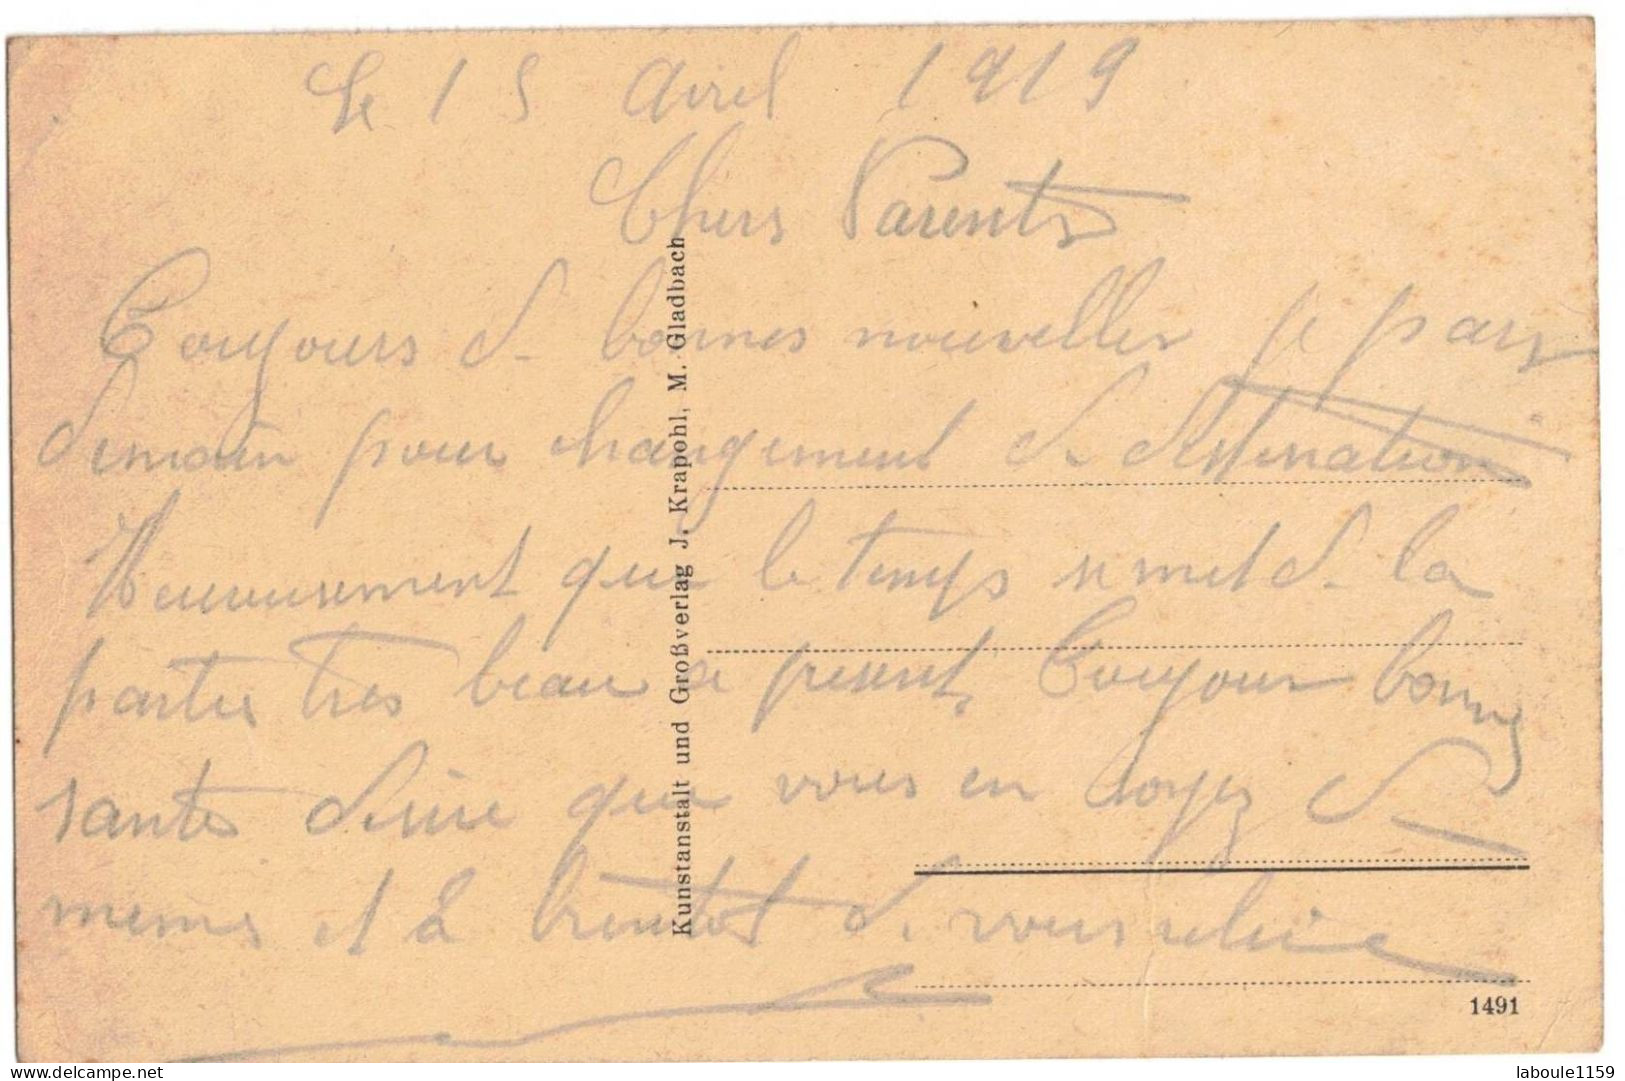 Le 15 Avril 1919
Chers Parents
Toujours de bonnes nouvelles je pars
demain pour changement de destination
Heureusement que le temps se met de la
partie tres beau a present, Toujour bonne
santé desire que vous en soyez de
meme et à bientot de vous relire
Kunstanstalt und Großverlag J. Krapohl, M. Gladbach
1491
www.delcampe.net
laboule1159